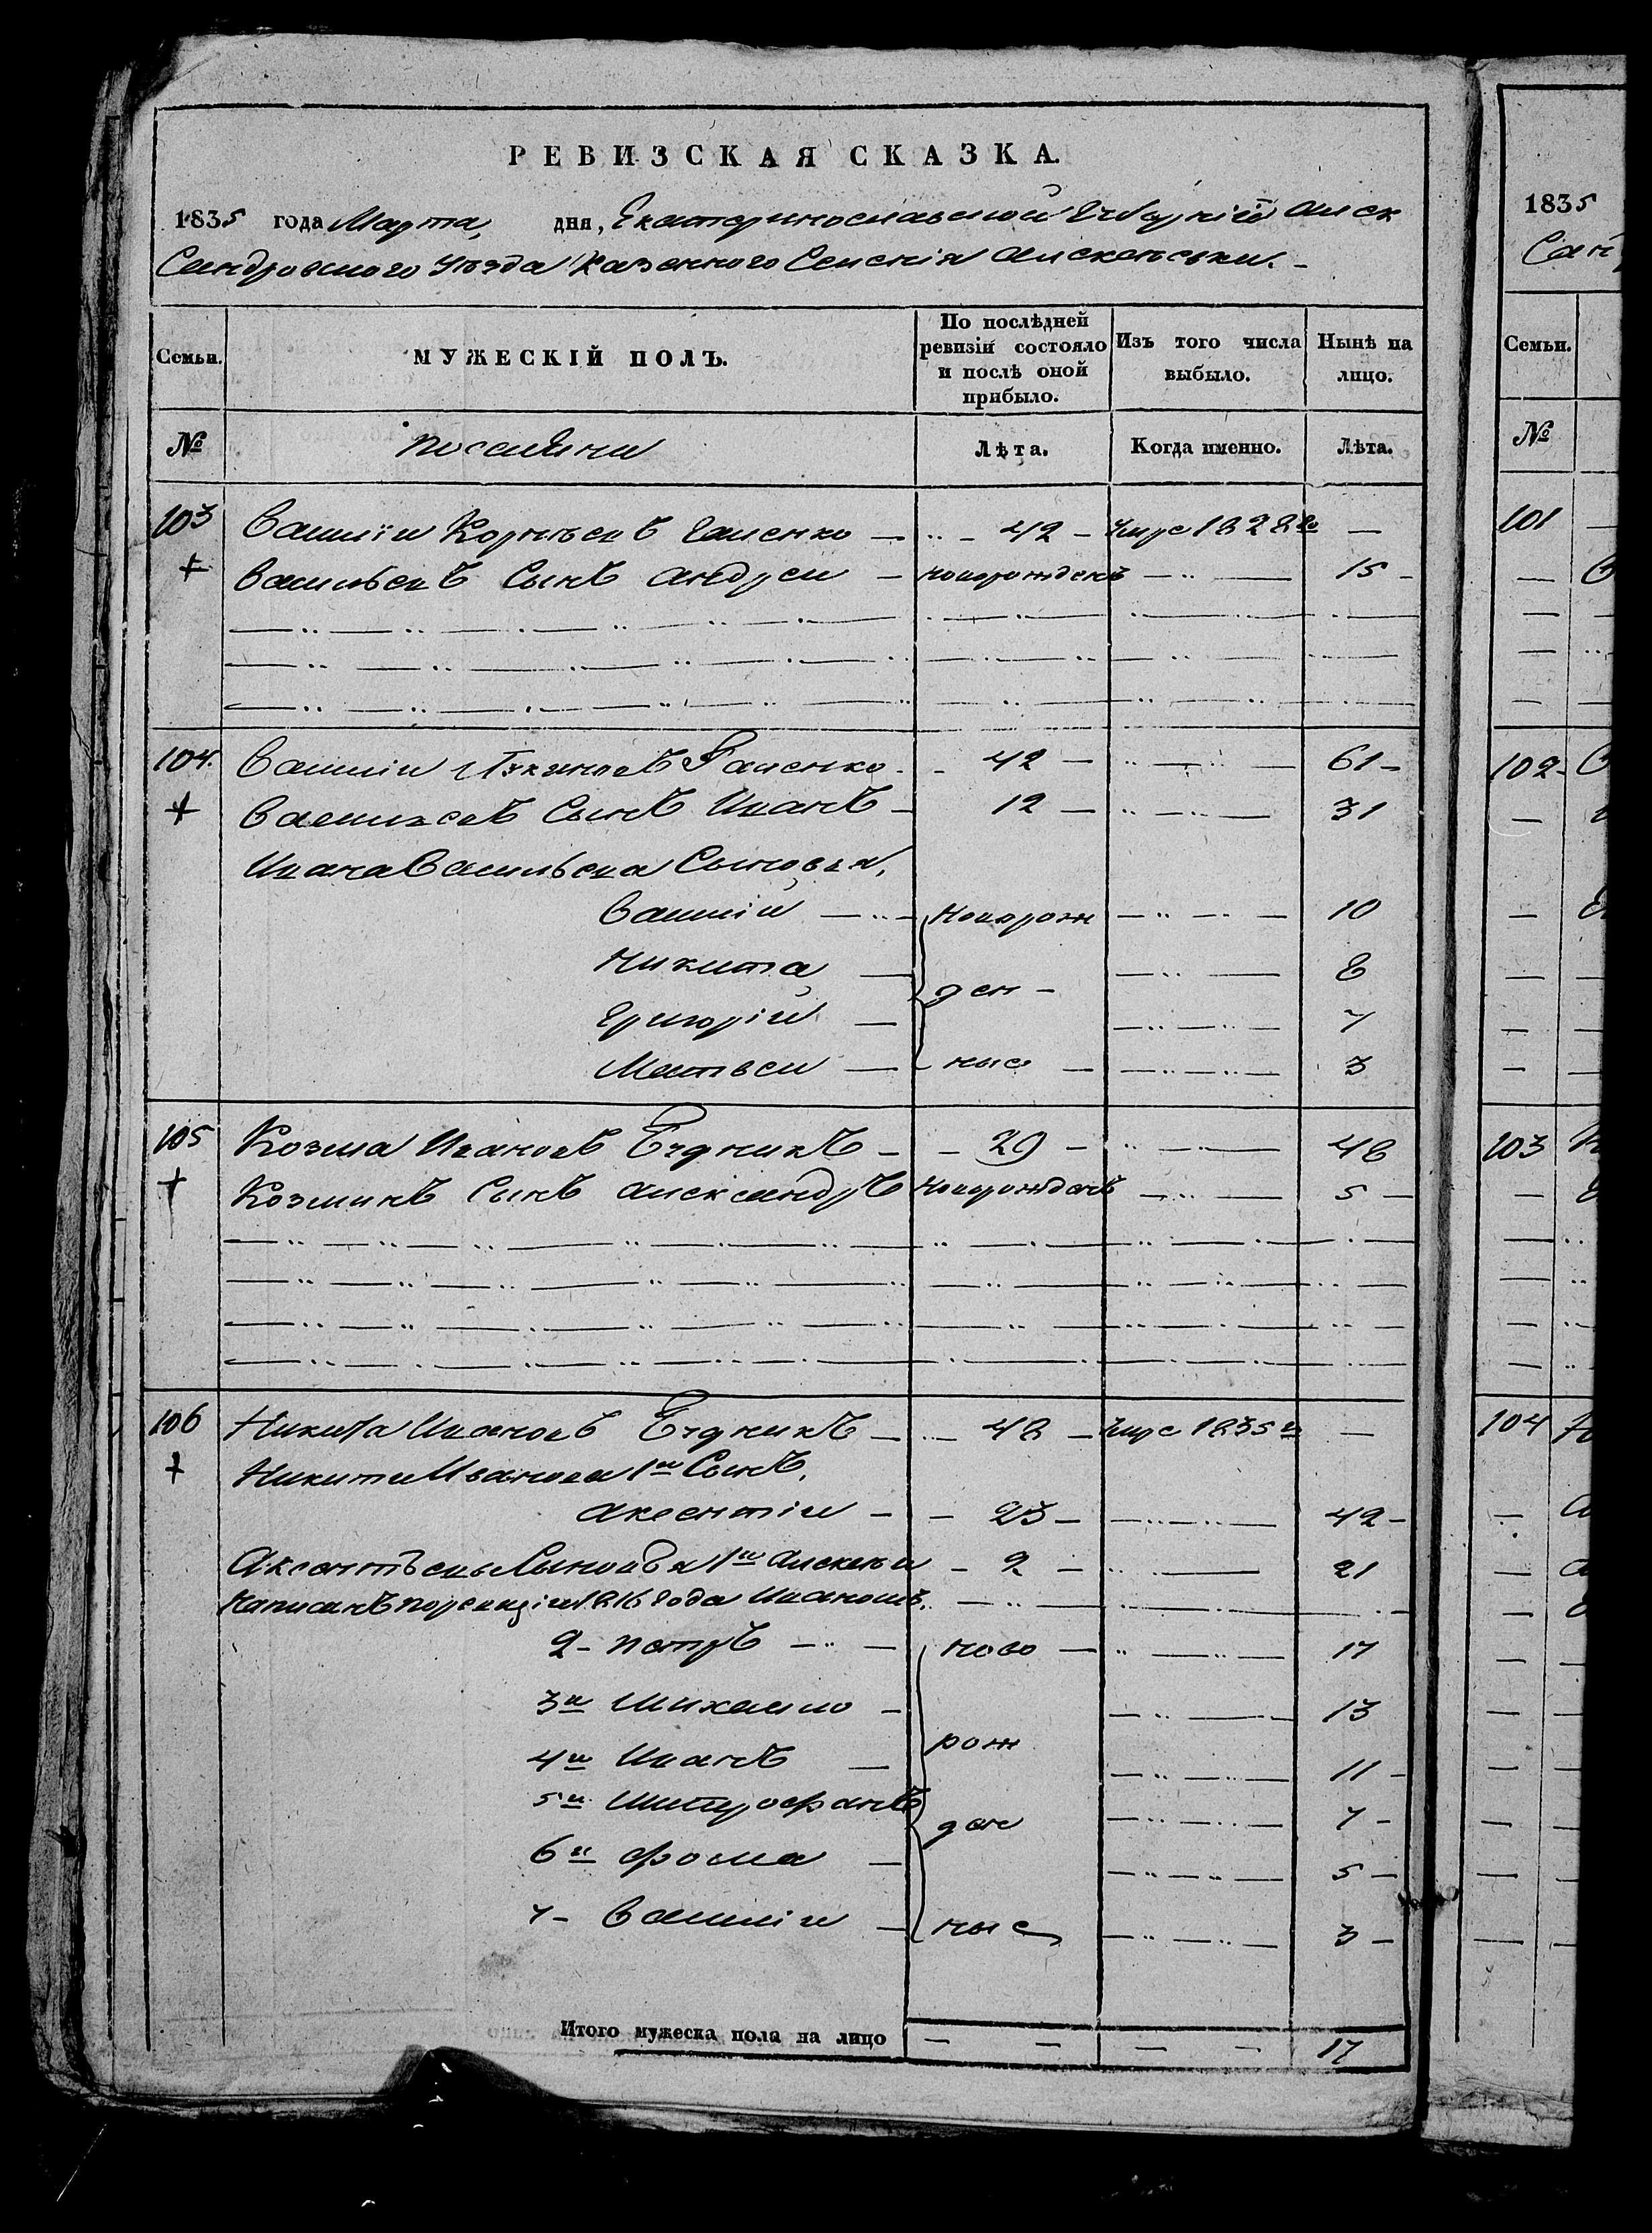 РЕВИЗСКАЯ СКАЗКА.
1835 года Марта, дня, Екатеринославской Губерніи Алек
Сандровского Уѣзда Казенного Селенія Алексеевки.
Семьи. МУЖЕСКІЙ ПОЛЪ. По послѣдней ревизіи состояло и послѣ оной прибыло. Изъ того числа выбыло. Нынѣ на лицо.
№ поселяни Лѣта. Когда именно. Лѣта.
103 Василіи Корнѣевъ Галенко 42 умре 1828го —
+ Васильевъ Сынъ андреи новорожденъ 15
104. Василіи Галенко 42 61
+ Васильевъ Сынъ Иванъ 12 31
Ивана Васильева Сыновья,
Василіи новорож 10
Никита ден 8
Григоріи 7
Матвеи ные 3
105 Козма Ивановъ 29 48
+ Козминъ Сынъ александръ новорожденъ 5
106 Никита Ивановъ 48 умре 1835 —
+ Никиты Иванова 1й Сынъ,
аксентіи 23 42
Аксентьевы Сыновья 1й алексеи 2 21
написанъ по ревизіи 1816 года Иваномъ.
2- петръ ново 17
3й михаило 13
рож
4й Иванъ 11
5й митрофанъ ден 7
6й фома 5
7- Василіи ные 3
Итого мужеска пола на лицо — — — — 17
1835
Сан
Семьи.
№
101
102
103
104